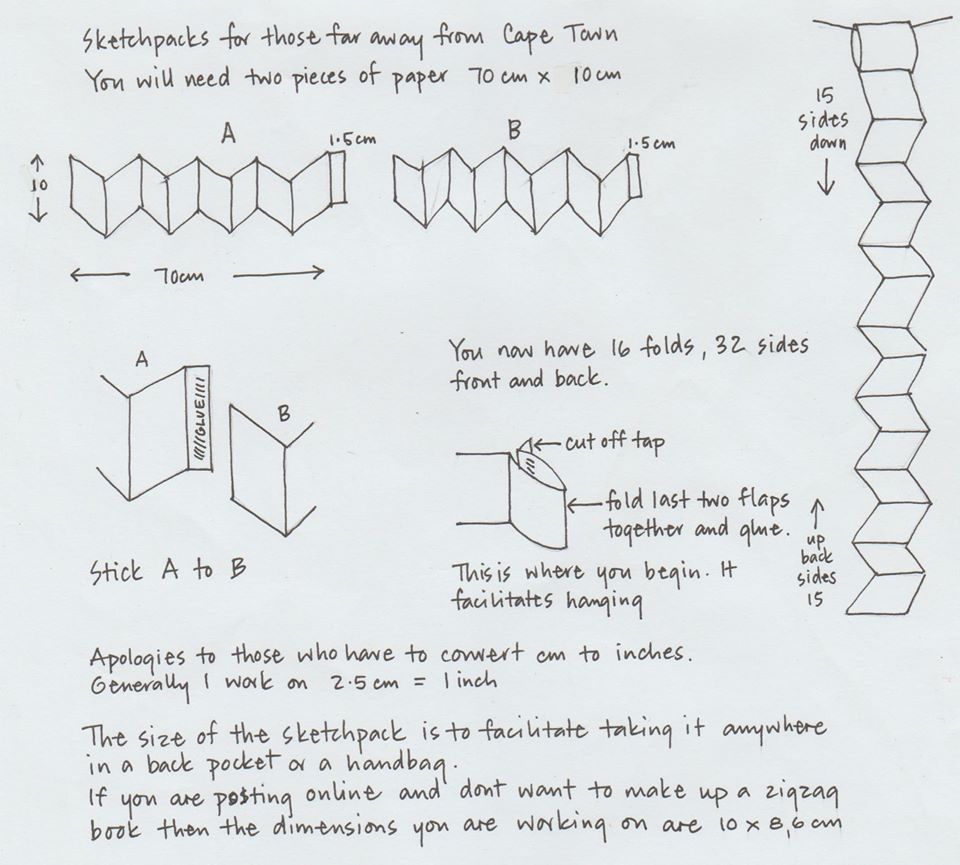 Sketchpacks for those far away from Cape Town
You will need two pieces of paper 70 cm x 10 cm
A
1.5cm
B
1.5cm
10
70cm
15
sides
down
A
GLUE
B
Stick A to B
You now have 16 folds, 32 sides
front and back.
cut off tap
fold last two flaps
together and glue.
This is where you begin. It
facilitates hanging
up
back
sides
15
Apologies to those who have to convert cm to inches.
Generally I work on 2.5 cm = 1 inch
The size of the sketchpack is to facilitate taking it anywhere
in a back pocket or a handbag.
If you are posting online and dont want to make up a zigzag
book then the dimensions you are working on are 10 x 8,6 cm